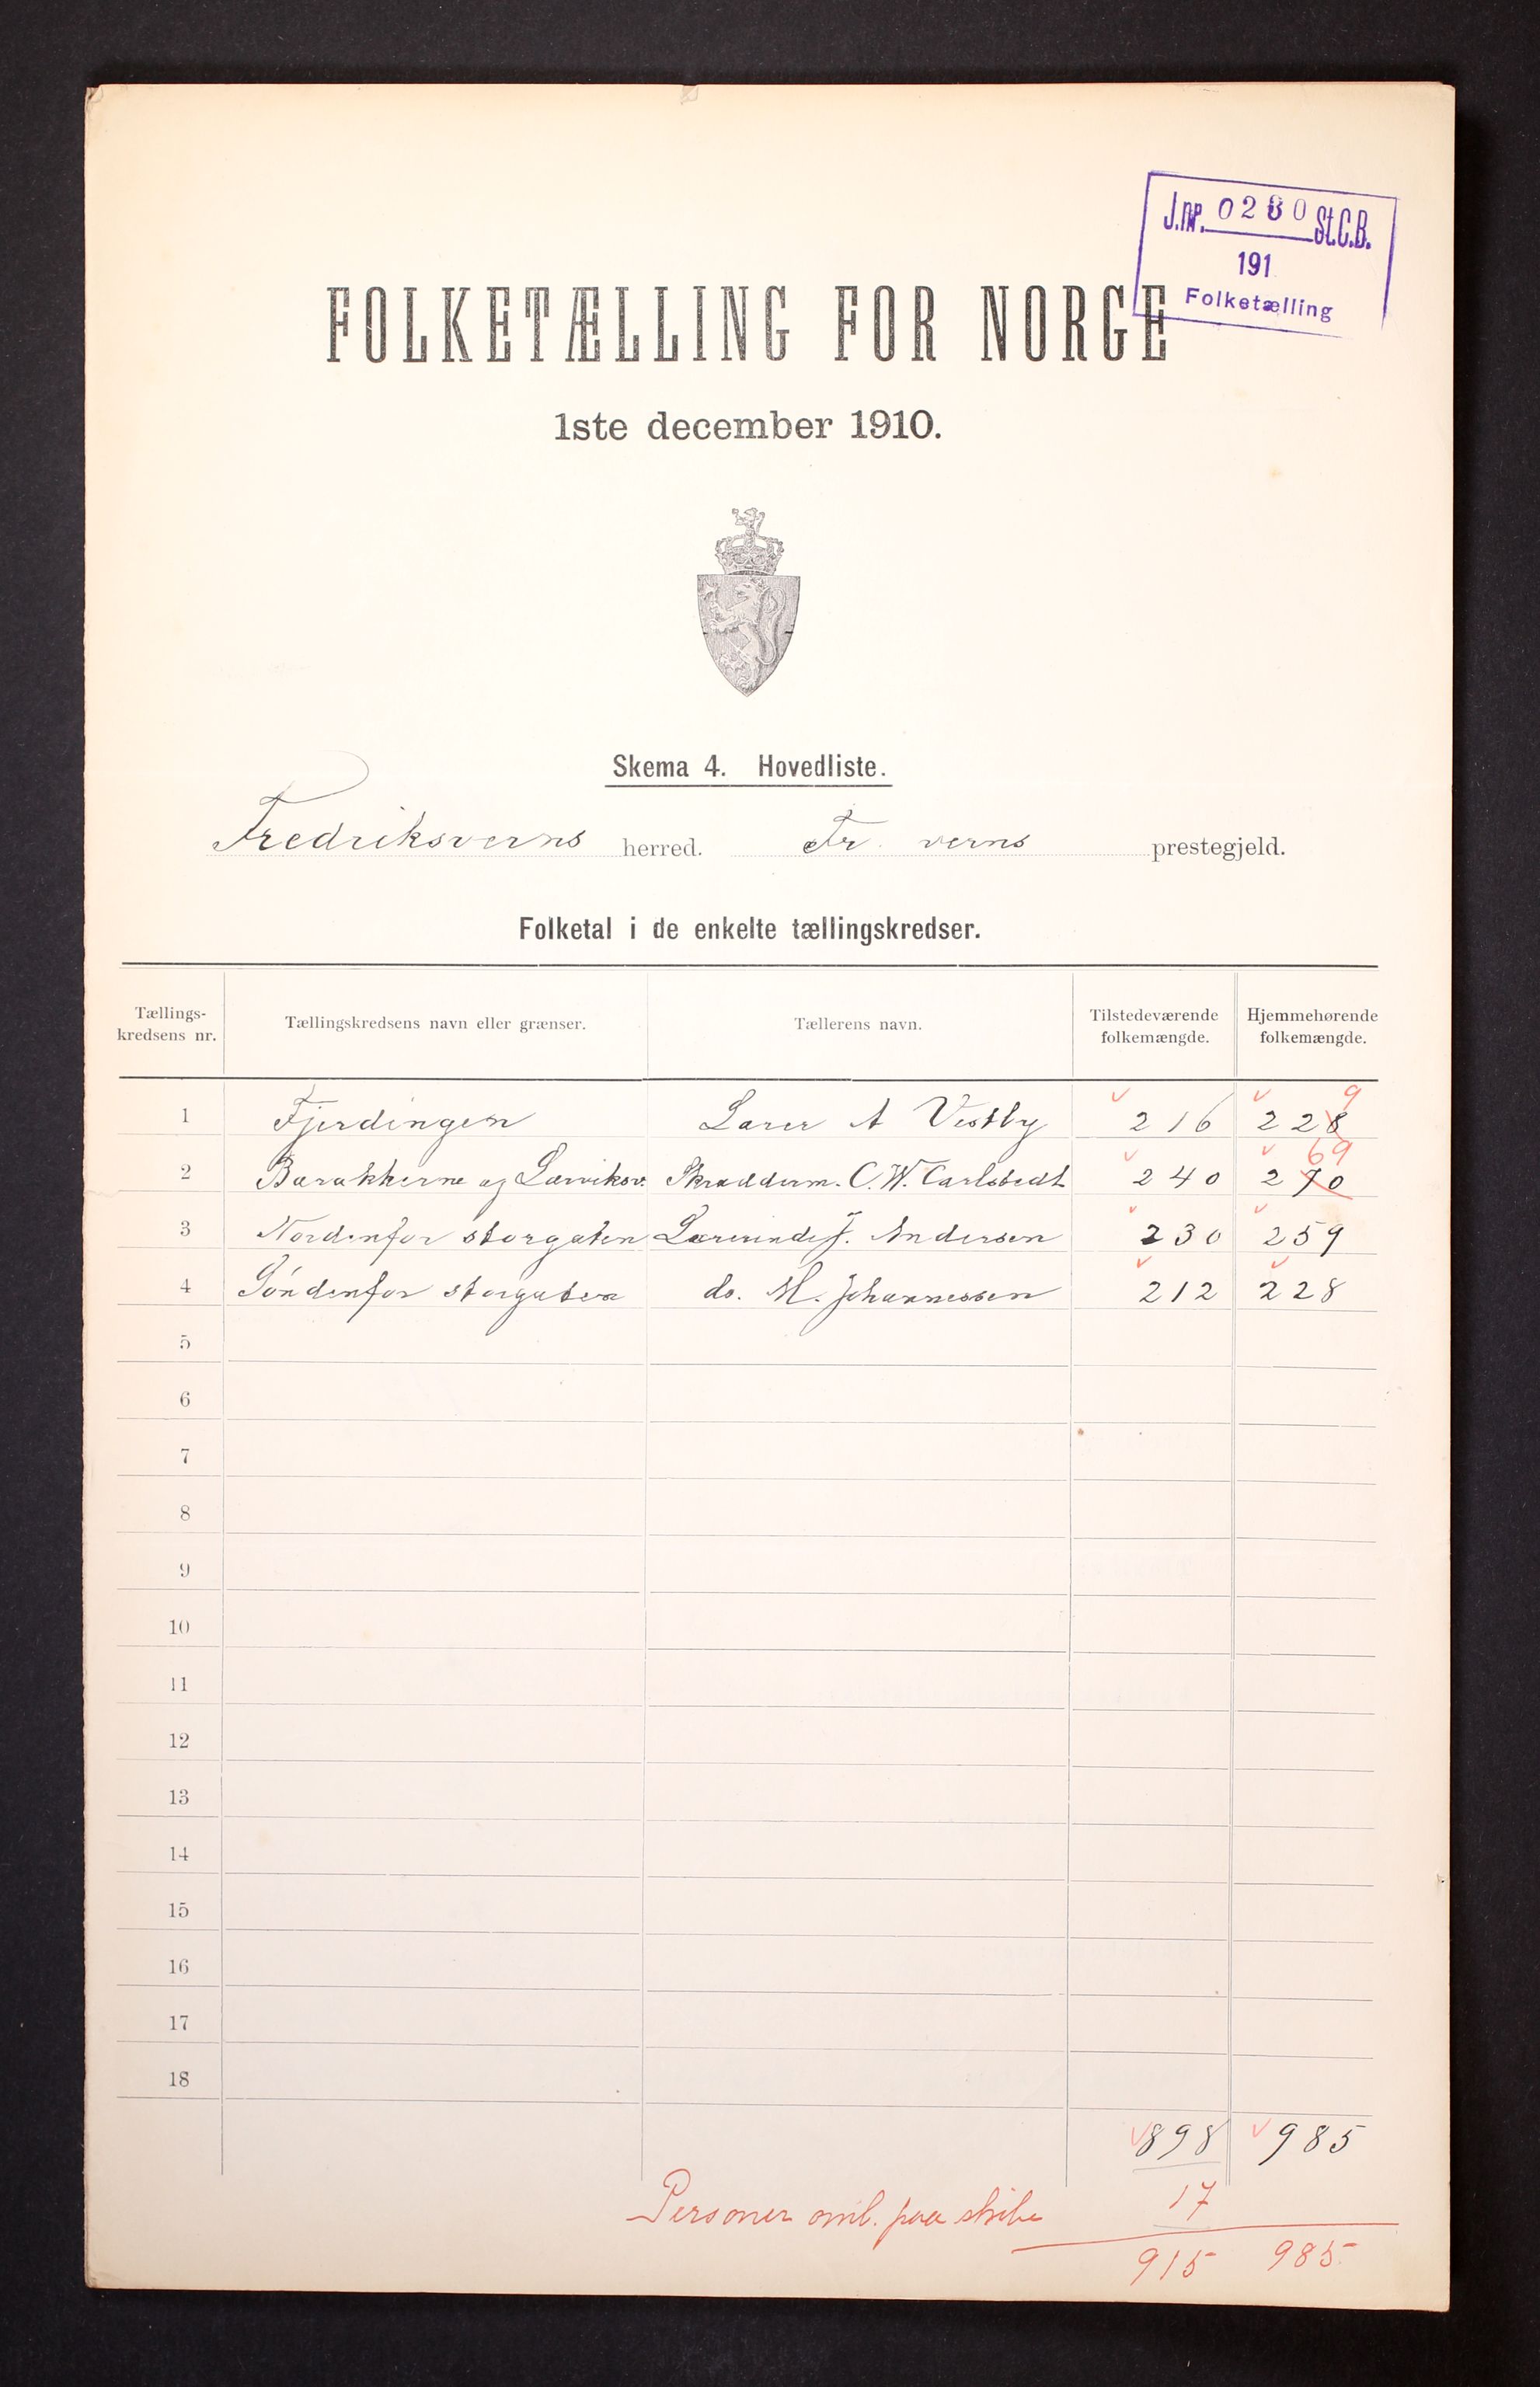 J.nr. 0280 St.C.B.
191
Folketælling
FOLKETÆLLING FOR NORGE
1ste december 1910.
Skema 4. Hovedliste.
Fredriksverns herred. Fr. verns prestegjeld.
Folketal i de enkelte tællingskredser.
Tællings-kredsens nr. Tællingskredsens navn eller grænser. Tællerens navn. Tilstedeværende folkemængde. Hjemmehørende folkemængde.
9
1 Fjerdingen Lærer A Vestby 216 228
69
2 Barakkerne og Larviksv. Skrædderm. C.W. Carlstedt 240 270
3 Nordenfor storgaten Lærerinde J. Andersen 230 259
4 Söndenfor storgaten do. M. Johannessen 212 228
5
6
7
8
9
10
11
12
13
14
15
16
17
18
898 985
Personer omb. paa skibe 17
915 985